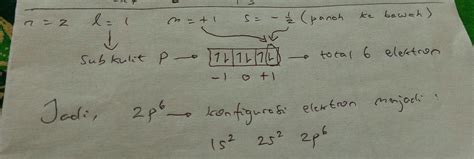 n = 2 l = 1 m = +1 s = -1/2 (panah ke bawah)
Subkulit P → 1↓ 1↓ 1↓ → total 6 elektron
-1 0 +1
Jadi, 2p⁶ → konfigurasi elektron menjadi :
1s² 2s² 2p⁶